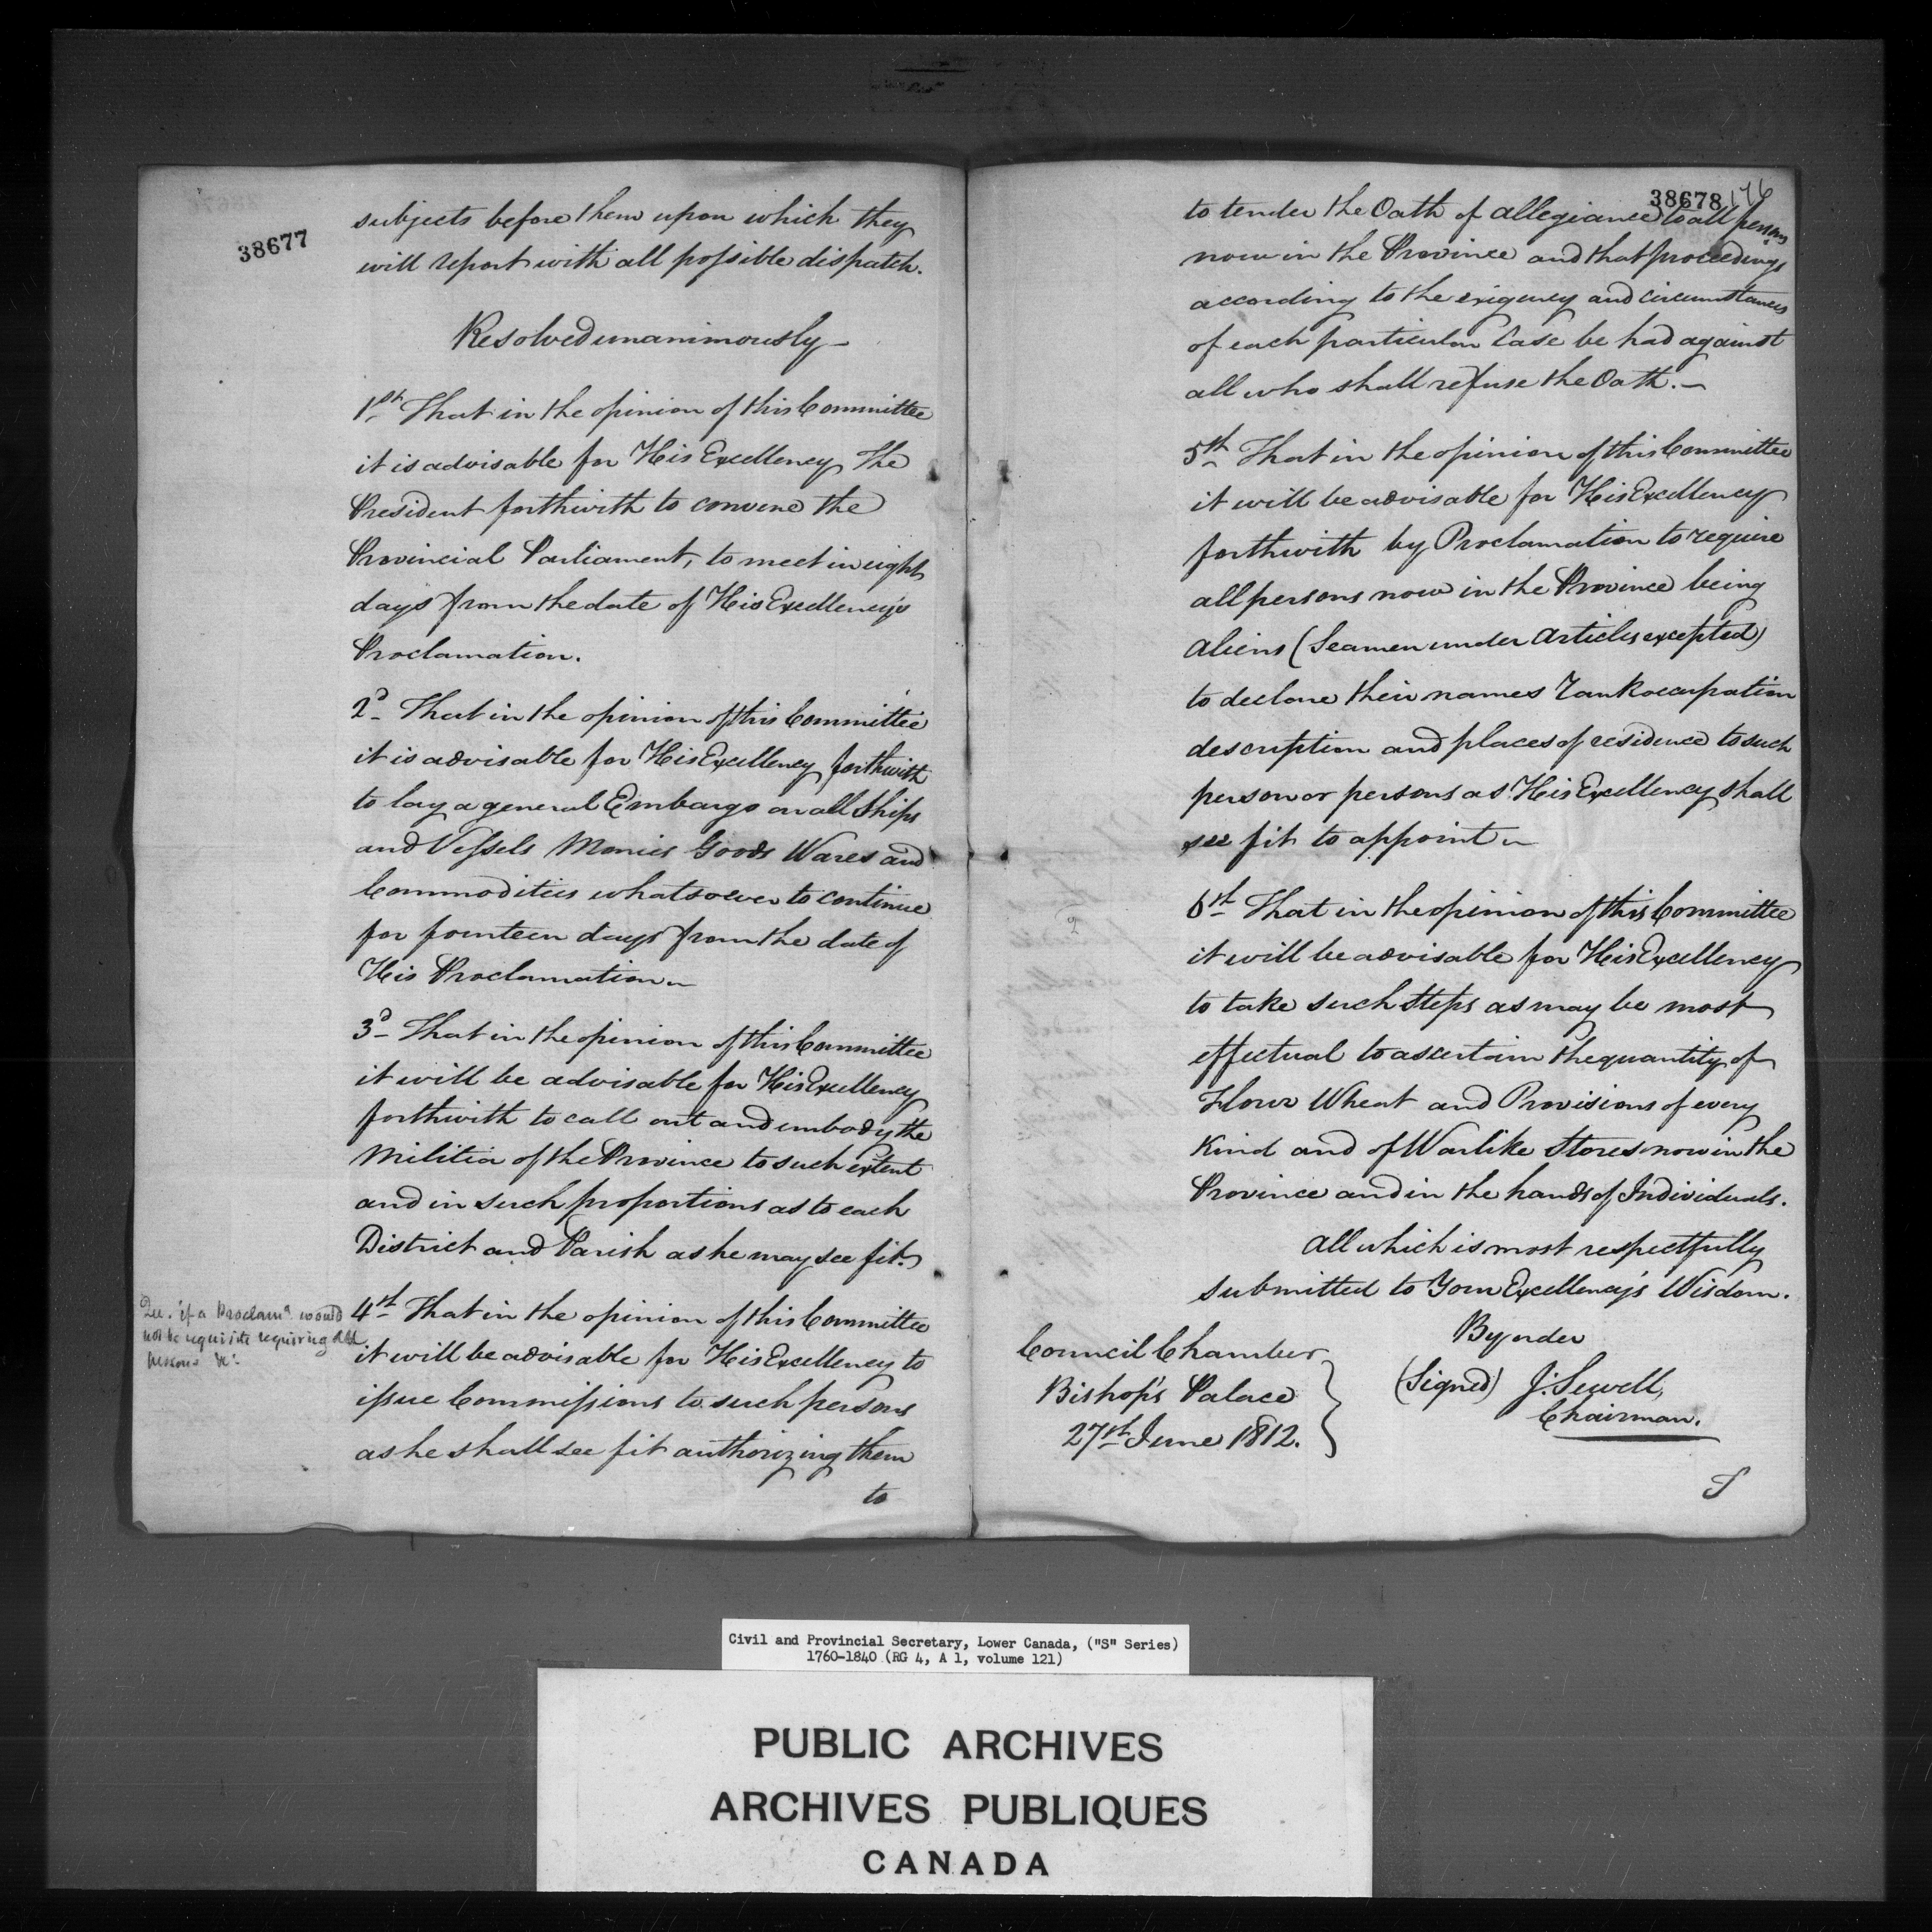 38677
subjects before them upon which they
will report with all possible dispatch.
Resolved unanimously –
1st That in the opinion of this Committee
it is advisable for His Excellency The
President forthwith to convene the
Provincial Parliament, to meet in eight
days from the date of His Excellency's
Proclamation.
2d That in the opinion of this Committee
it is advisable for His Excellency forthwith
to lay a general Embargo on all Ships
and Vessels Monies Goods Wares and
Commodities whatsoever to continue
for fourteen days from the date of
His Proclamation –
3d That in the opinion of this Committee
it will be advisable for His Excellency
forthwith to call out and embody the
Militia of the Province to such extent
and in such proportions as to each
District and Parish as he may see fit.
Que. if a Proclamn. would
not be requisite requiring all
persons &c.
4th That in the opinion of this Committee
it will be advisable for His Excellency to
issue Commissions to such persons
as he shall see fit authorizing them
to
38678 176
to tender the Oath of allegiance to all persons
now in the Province and that proceedings
according to the exigency and circumstances
of each particular Case be had against
all who shall refuse the Oath. –
5th That in the opinion of this Committee
it will be advisable for His Excellency
forthwith by Proclamation to require
all persons now in the Province being
Aliens (Seamen under Articles excepted)
to declare their names rank occupation
description and places of residence to such
person or persons as His Excellency shall
see fit to appoint –
2
6th That in the opinion of this Committee
it will be advisable for His Excellency
to take such steps as may be most
effectual to ascertain the quantity of
Flour Wheat and Provisions of every
Kind and of Warlike Stores now in the
Province and in the hands of Individuals.
All which is most respectfully
submitted to Your Excellency's Wisdom.
By order
Council Chamber
Bishop's Palace
27th June 1812.
(Signed) J: Sewell,
Chairman.
Civil and Provincial Secretary, Lower Canada, ("S" Series)
1760-1840 (RG 4, A 1, volume 121)
PUBLIC ARCHIVES
ARCHIVES PUBLIQUES
CANADA